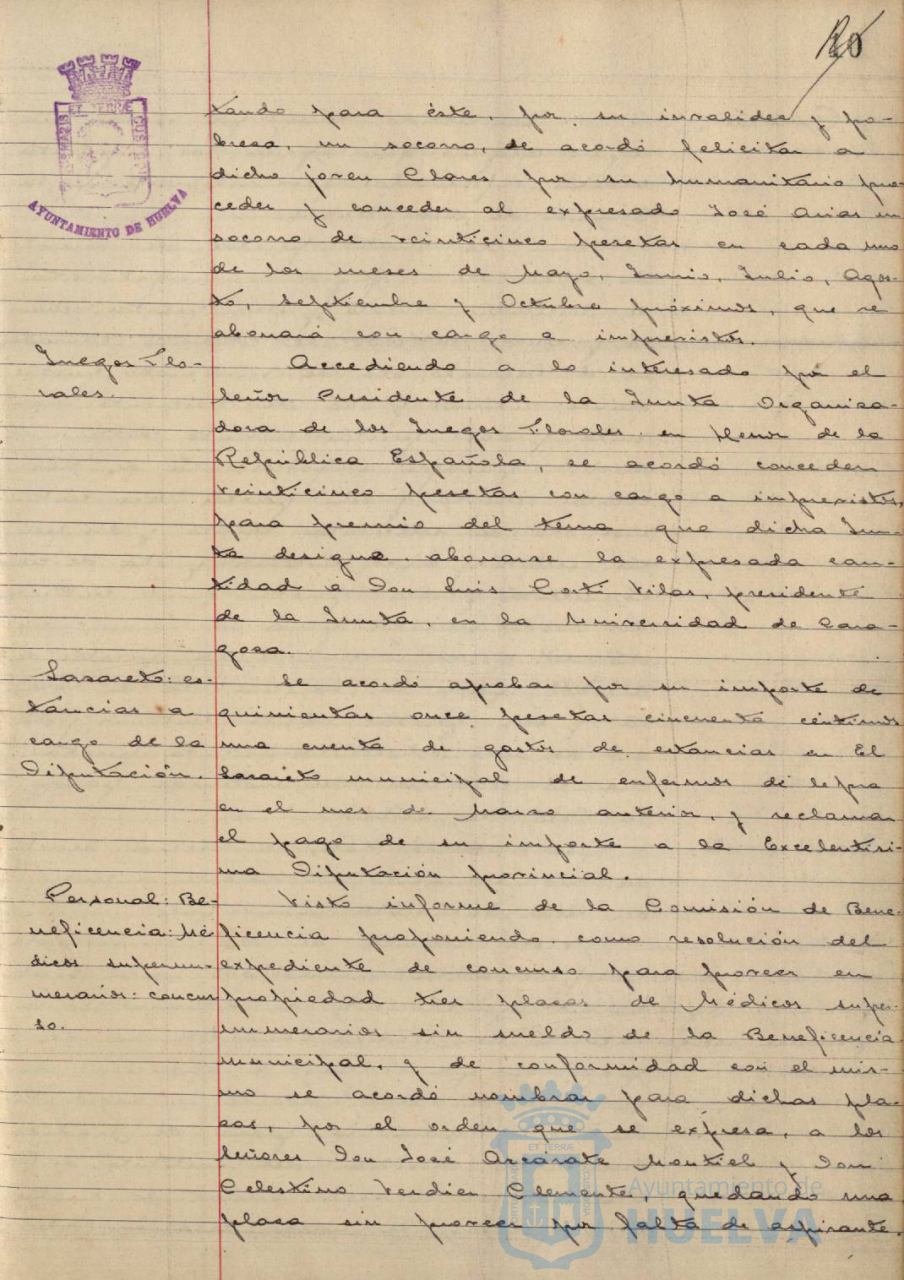 20
tando para éste, por su invalidez y po-
breza, un socorro, se acordó felicitar a
dicho joven Clares por su humanitario pro-
ceder y conceder al expresado José Arias un
socorro de veinticinco pesetas en cada uno
de los meses de Mayo, Junio, Julio, Agos-
to, Septiembre y Octubre próximos, que se
abonará con cargo a imprevistos.
Juegos Flo-
rales.
Accediendo a lo interesado por el
Señor Presidente de la Junta Organiza-
dora de los Juegos Florales en Honor de la
República Española, se acordó conceder
veinticinco pesetas con cargo a imprevistos,
para premio del tema que dicha Jun-
ta designe. abonarse la expresada can-
tidad a Don Luis Vilas, presidente
de la Junta, en la Universidad de Zara-
goza.
Lazareto: es-
tancias a
cargo de la
Diputación.
Se acordó aprobar por su importe de
quinientas once pesetas cincuenta céntimos
una cuenta de gastos de estancias en El
Lazareto municipal de enfermos de lepra
en el mes de Marzo anterior, y reclamar
el pago de su importe a la Excelentísi-
ma Diputación provincial.
Personal: Be-
neficencia: Mé-
dicos supernu-
merarios: concur-
so.
Visto informe de la Comisión de Bene-
ficencia proponiendo como resolución del
expediente de concurso para proveer en
propiedad tres plazas de Médicos super-
numerarios sin sueldo de la Beneficencia
municipal, y de conformidad con el mis-
mo se acordó nombrar para dichas pla-
zas, por el orden que se expresa, a los
Señores Don José Arcárate Montiel y Don
Celestino Verdier Clemente, quedando una
plaza sin proveer por falta de aspirante.
AYUNTAMIENTO DE HUELVA
Ayuntamiento de
HUELVA